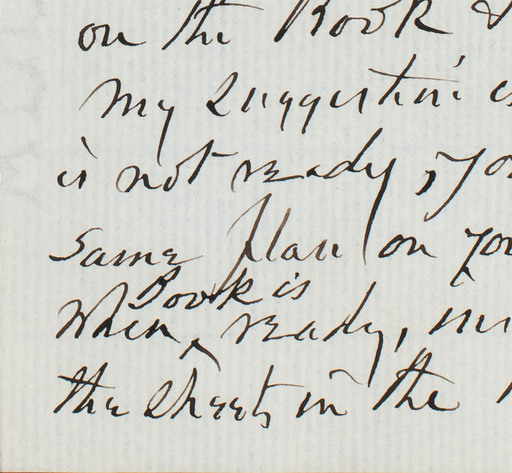 on the Book &
My Suggestion is
is not ready, you
same plan on you
Book is
When ^ ready, in
the Sheets in the